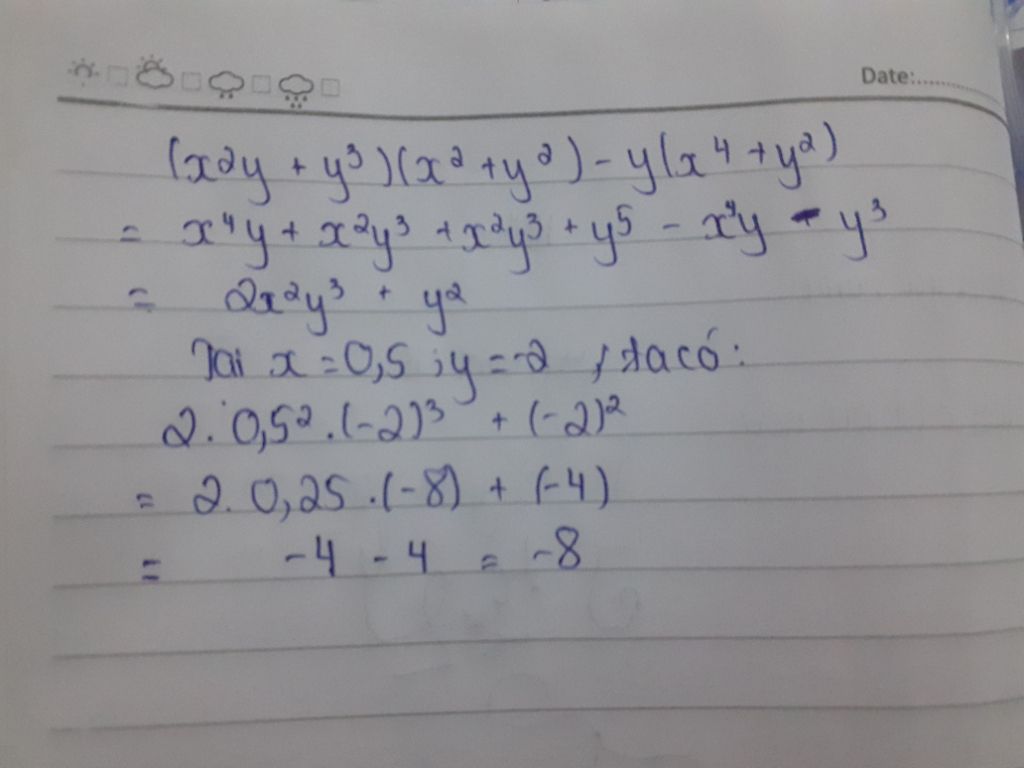 Date:.........
(x²y + y³)(x² + y²) - y(x⁴ + y²)
= x⁴y + x²y³ + x²y³ + y⁵ - x⁴y - y³
= 2x²y³ + y²
Tai x = 0,5 ; y = -2 , ta có :
2. 0,5² . (-2)³ + (-2)²
= 2. 0,25 . (-8) + (-4)
= -4 - 4 = -8